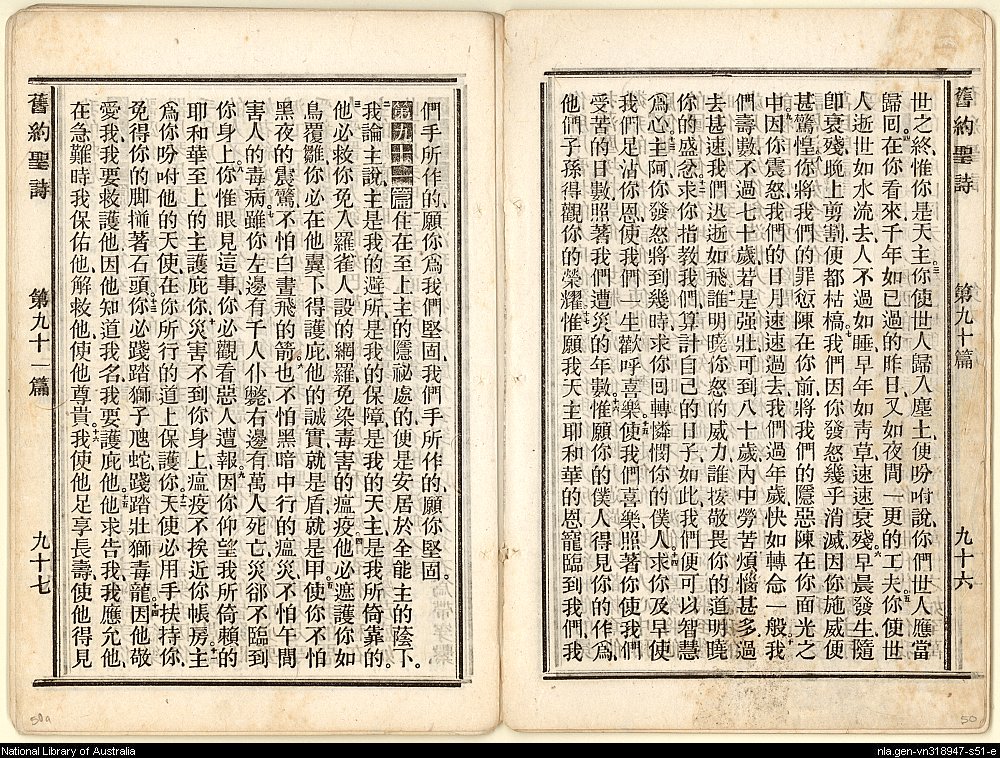 舊約聖詩 第九十篇 九十六
世之終惟你是天主你使世人歸入塵土使吩咐說你們世人應當
歸回在你看來千年如已過的昨日又如夜間一更的工夫你使世
人逝世如水流去人不過如睡早年如靑草速速衰殘早晨發生隨
卽衰殘晚上剪割便都枯槁我們因你發怒幾乎消滅因你施威便
甚驚惶你將我們的罪愆陳在你前將我們的隱惡陳在你面光之
中因你震怒我們的日月速速過去我們過年歲快如轉念一般我
們壽數不過七十歲若是强壯可到八十歲內中勞苦煩惱甚多過
去甚速我們迅逝如飛誰明曉你怒的威力誰按敬畏你的道明曉
你的盛忿求你指教我們算計自己的日子如此我們便可以智慧
爲心主阿你發怒將到幾時求你回轉憐憫你的僕人求你及早使
我們足沾你恩使我們一生歡呼喜樂使我們喜樂照著你使我們
受苦的日數照著我們遭災的年數惟願你的僕人得見你的作爲
他們子孫得觀你的榮耀惟願我天主耶和華的恩寵臨到我們我
舊約聖詩 第九十一篇 九十七
們手所作的願你爲我們堅固我們手所作的願你堅固
第九十一篇 住在至上主的隱祕處的便是安居於全能主的蔭下
我論主說主是我的避所是我的保障是我的天主是我所倚靠的
他必救你免入羅雀人設的網羅免染毒害的瘟疫他必遮護你如
鳥覆雛你必在他翼下得護庇他的誠實就是盾就是甲使你不怕
黑夜的震驚不怕白晝飛的箭也不怕黑暗中行的瘟災不怕午間
害人的毒病雖你左邊有千人仆斃右邊有萬人死亡災卻不臨到
你身上你惟眼見這事你必觀看惡人遭報因你仰望我所倚賴的
耶和華至上的主護庇你災害不到你身上瘟疫不挨近你帳房主
爲你吩咐他的天使在你所行的道上保護你天使必用手扶持你
免得你的脚撞著石頭你必踐踏獅子虺蛇踐踏壯獅毒龍因他敬
愛我我要救護他因他知道我名我要護庇他他求告我我應允他
在急難時我保佑他解救他使他尊貴我使他足享長壽使他得見
50a
50
National Library of Australia
nla.gen-vn318947-s51-e